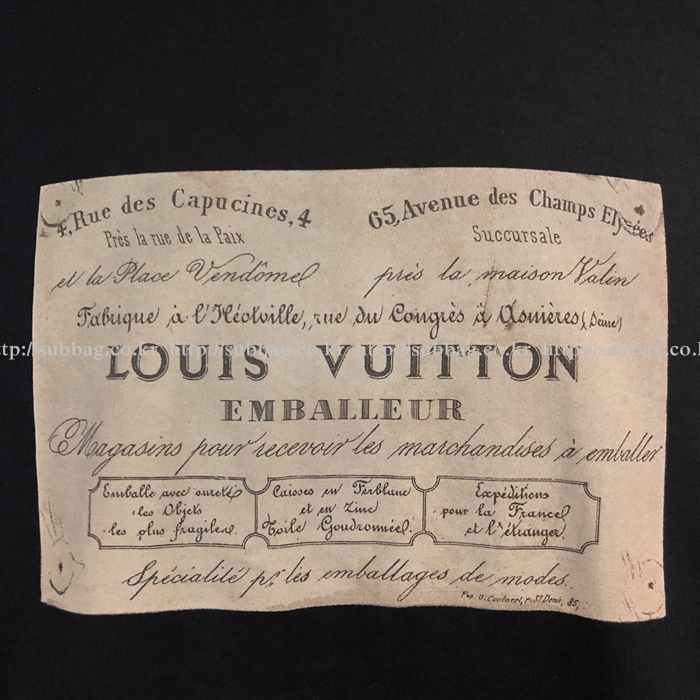 4, Rue des Capucines, 4
Près la rue de la Paix
et la Place Vendôme
65, Avenue des Champs Elysées
Succursale
près la maison Valin
Fabrique à l'Héotville, rue du Congrès à Asnières (Seine)
http://subbag.co.kr http://subbag.co.kr http://subbag.co.kr http://subbag.co.k
LOUIS VUITTON
EMBALLEUR
Magasins pour recevoir les marchandises à emballer
Emballe avec sureté
les Objets
les plus fragiles.
Caisses en Ferblanc
et en Zinc
Toile Goudronnée
Expéditions
pour la France
et l'étranger.
Spécialité pr. les emballages de modes.
St. Denis, 85.